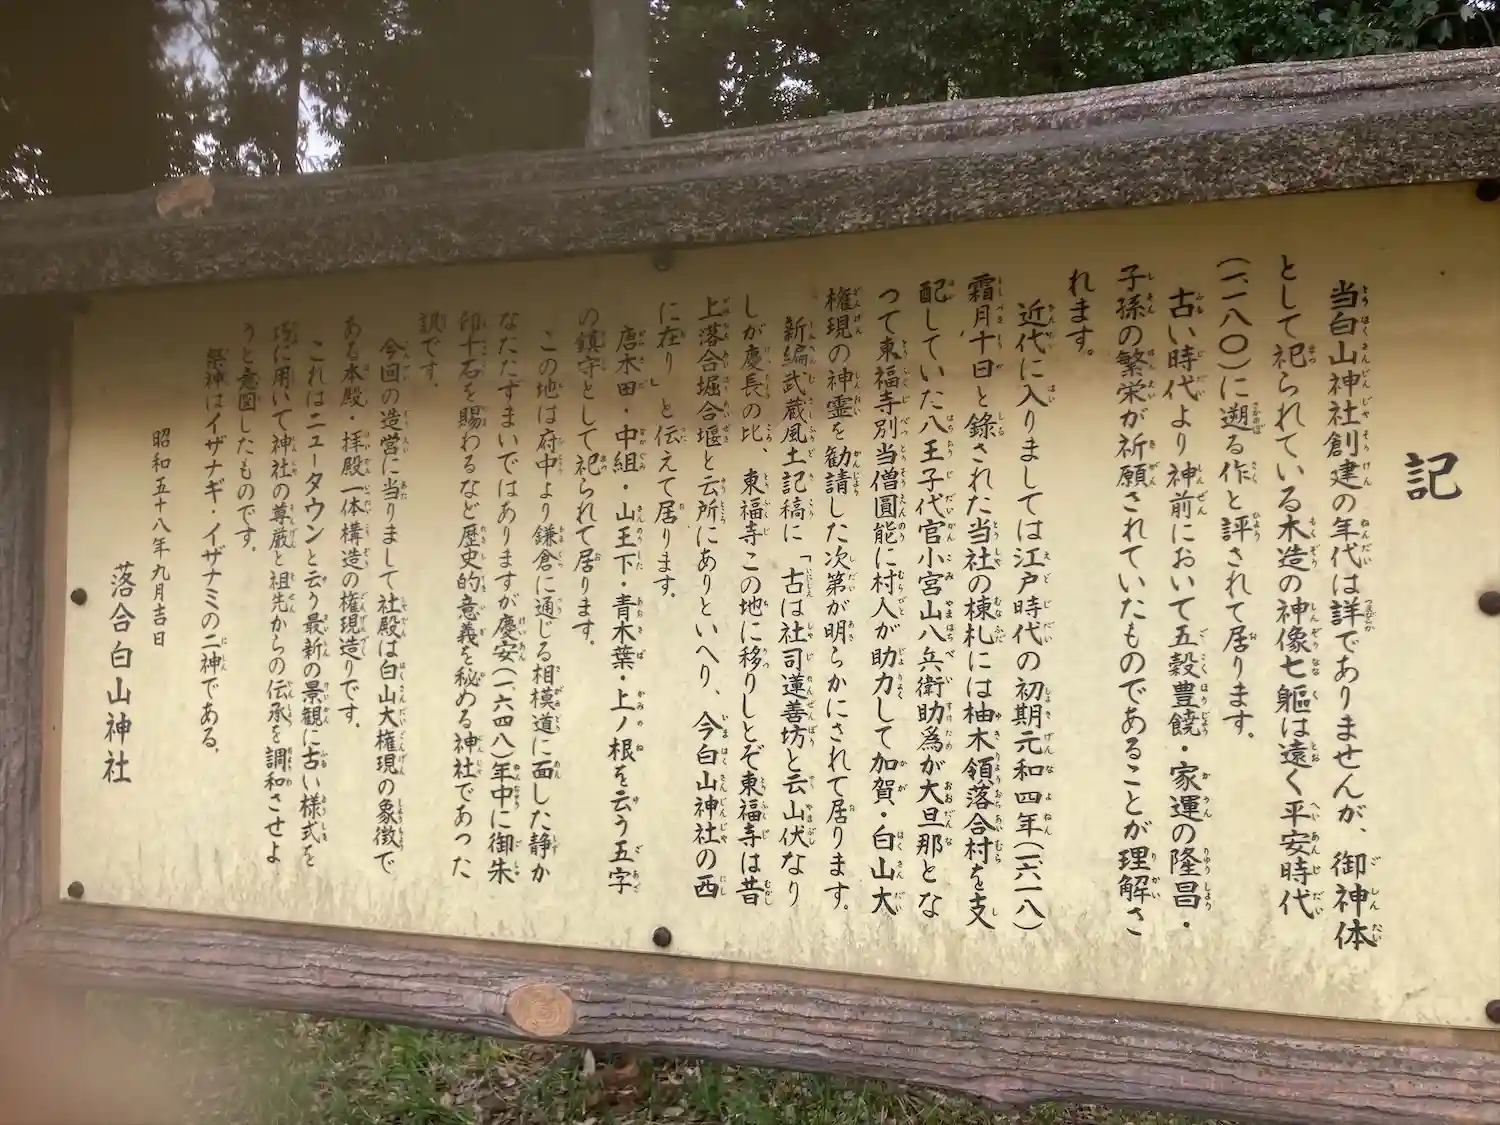 記
当白山神社創建の年代は詳でありませんが、御神体
として祀られている木造の神像七躯は遠く平安時代
(一、一八〇)に遡る作と評されて居ります。
古い時代より神前において五穀豊饒・家運の隆昌・
子孫の繁栄が祈願されていたものであることが理解さ
れます。
近代に入りましては江戸時代の初期元和四年(一、六一八)
霜月十日と錄された当社の棟札には柚木領落合村を支
配していた八王子代官小宮山八兵衛助爲が大旦那とな
って東福寺別当僧圓能に村人が助力して加賀・白山大
権現の神霊を勧請した次第が明らかにされて居ります。
新編武蔵風土記稿に「古は社司蓮善坊と云山伏なり
しが慶長の比、東福寺この地に移りしとぞ東福寺は昔
上落合堀合堰と云所にありといへり、今白山神社の西
に在り」と伝えて居ります。
唐木田・中組・山王下・青木葉・上ノ根を云う五字
の鎮守として祀られて居ります。
この地は府中より鎌倉に通じる相模道に面した静か
なたたずまいではありますが慶安(一、六四八)年中に御朱
印十石を賜わるなど歴史的意義を秘める神社であった
訳です。
今回の造営に当りまして社殿は白山大権現の象徴で
ある本殿・拝殿一体構造の権現造りです。
これはニュータウンと云う最新の景観に古い様式を
巧に用いて神社の尊厳と祖先からの伝承を調和させよ
うと意図したものです。
祭神はイザナギ・イザナミの二神である。
昭和五十八年九月吉日
落合白山神社